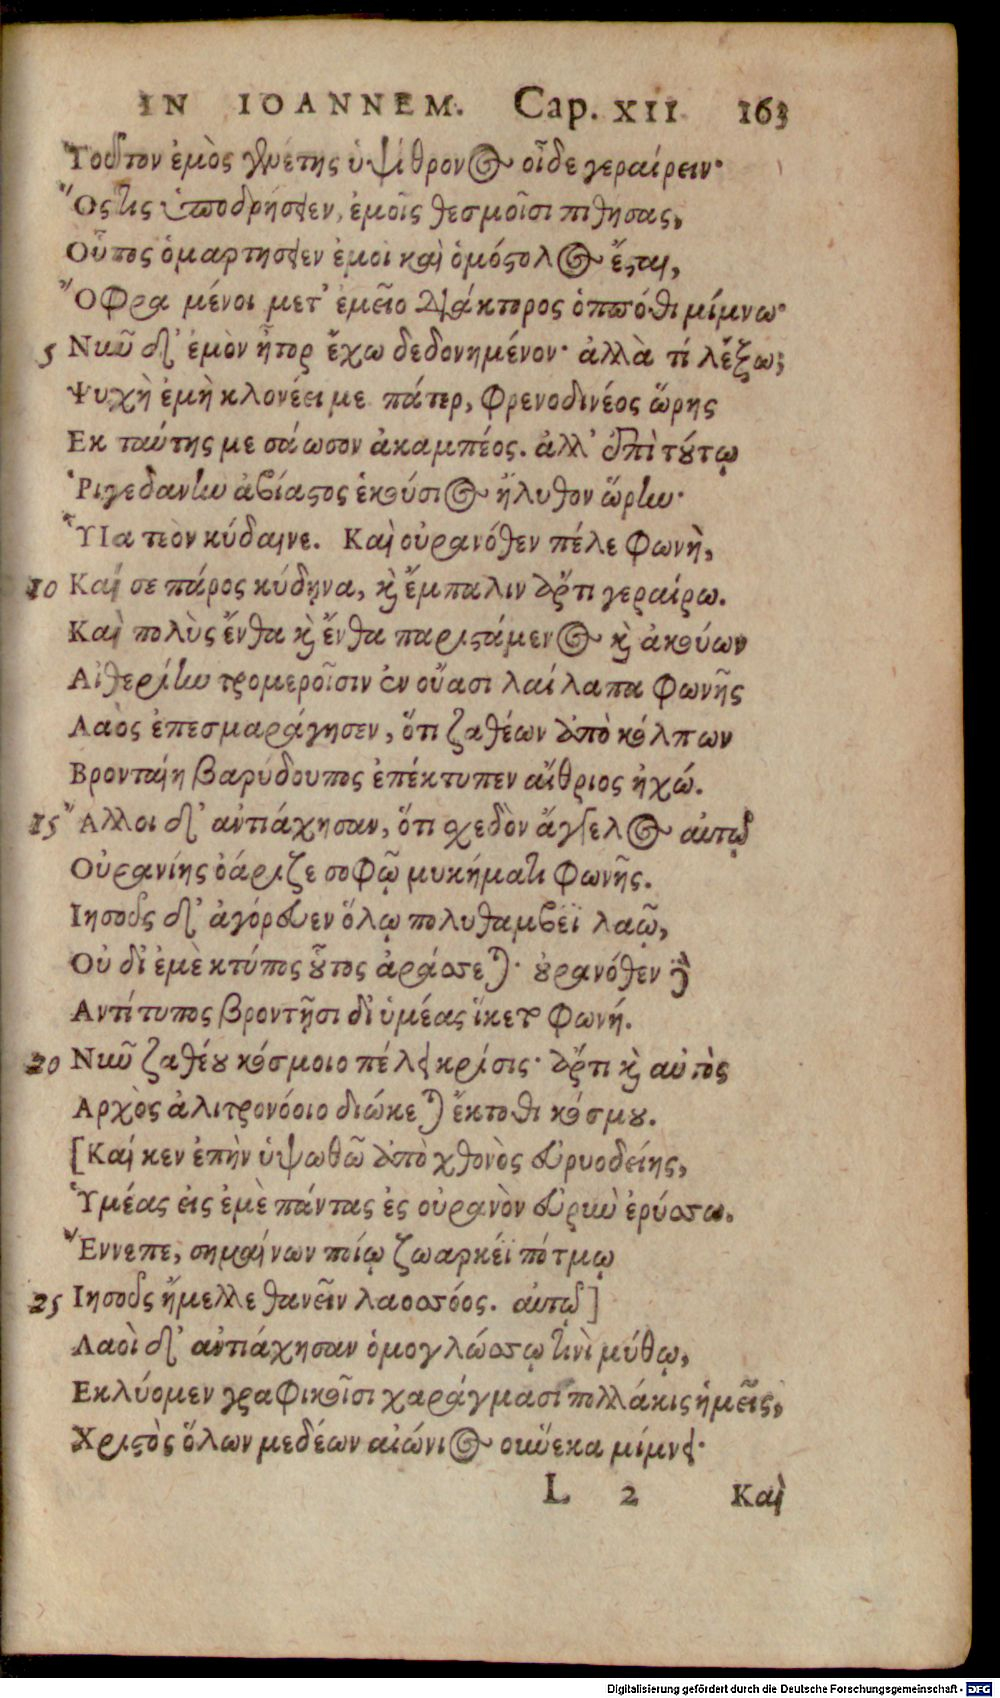 IN IOANNEM. Cap. XII 163
Τοῦτον ἐμὸς γενέτης ὑψίθρονος οἶδε γεραίρειν·
Ὅςτις ὑποδρήσσει ἐν, ἐμοῖς θεσμοῖσι πιθήσας,
Οὗτος ὁμαρτήσειεν ἐμοὶ καὶ ὁμόστολος ἔσται,
Ὄφρα μένοι μετ' ἐμεῖο διάκτορος ὁππόθι μίμνω·
5 Νῦν δ' ἐμὸν ἦτορ ἔχω δεδονημένον· ἀλλὰ τί λέξω;
Ψυχὴ ἐμὴ κλονέει με πάτερ, φρενοδινέος ὥρης
Εκ ταύτης με σάωσον ἀκαμπέος. ἀλλ' ἐπὶ τούτῳ
Ῥιγεδανὴν ἀβίαστος ἑκούσιος ἤλυθον ὥρην·
Υἷα τεὸν κύδαινε. Καὶ οὐρανόθεν πέλε φωνὴ,
10 Καί σε πάρος κύδηνα, καὶ ἔμπαλιν ἄρτι γεραίρω.
Καὶ πολὺς ἔνθα καὶ ἔνθα παριστάμενος καὶ ἀκούων
Αἰθερίην τρομεροῖσιν ἐν οὔασι λαίλαπα φωνῆς
Λαὸς ἐπεσμαράγησεν, ὅτι ζαθέων ἀπὸ κόλπων
Βρονταίη βαρύδουπος ἐπέκτυπεν αἴθριος ἠχώ.
15 Ἄλλοι δ' ἀντιάχησαν, ὅτι σχεδὸν ἄγγελος αὐτῷ
Οὐρανίης ὀάριζε σοφῷ μυκήματι φωνῆς.
Ιησοῦς δ' ἀγόρευεν ὅλῳ πολυθαμβέϊ λαῷ,
Οὐ δι' ἐμὲ κτύπος οὗτος ἀράσσεται· οὐρανόθεν δὲ
Αντίτυπος βροντῇσι δι' ὑμέας ἵκετο φωνή.
20 Νῦν ζαθέου κόσμοιο πέλει κρίσις· ἄρτι καὶ αὐτὸς
Αρχὸς ἀλιτρονόοιο διώκεται ἔκτοθι κόσμου.
[Καί κεν ἐπὴν ὑψωθῶ ἀπὸ χθονὸς εὐρυοδείης,
Ὑμέας εἰς ἐμὲ πάντας ἐς οὐρανὸν εὐρὺν ἐρύσσω.
Ἔννεπε, σημαίνων ποίῳ ζωαρκέϊ πότμῳ
25 Ιησοῦς ἤμελλε θανεῖν λαοσσόος. αὐτῷ]
Λαοὶ δ' ἀντιάχησαν ὁμογλώσσῳ τινὶ μύθῳ,
Εκλύομεν γραφικοῖσι χαράγμασι πολλάκις ἡμεῖς,
Χριστὸς ὅλων μεδέων αἰώνιος οὕνεκα μίμνει·
L 2 Καὶ
Digitalisierung gefördert durch die Deutsche Forschungsgemeinschaft - DFG